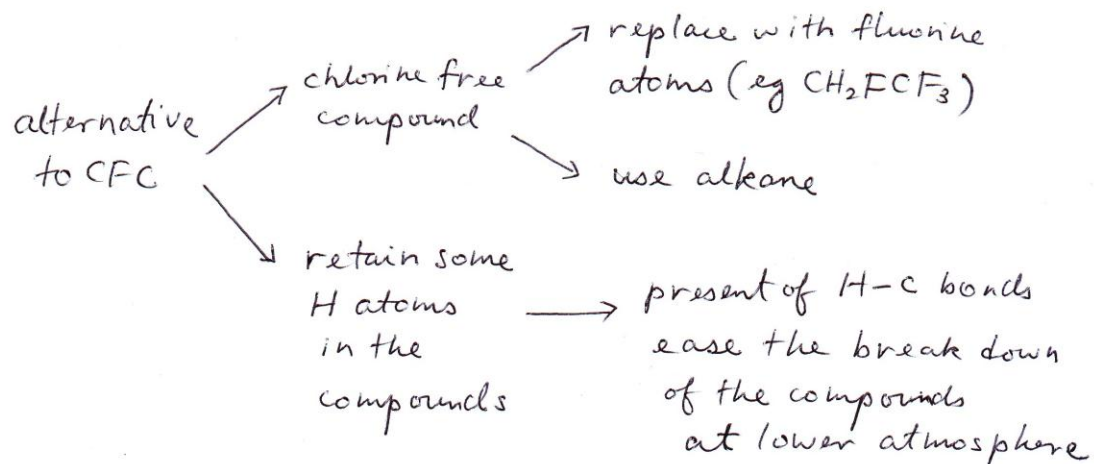 alternative
to CFC
chlorine free
compound
replace with fluorine
atoms (eg CH₂FCF₃)
use alkane
retain some
H atoms
in the
compounds
present of H-C bonds
ease the break down
of the compounds
at lower atmosphere